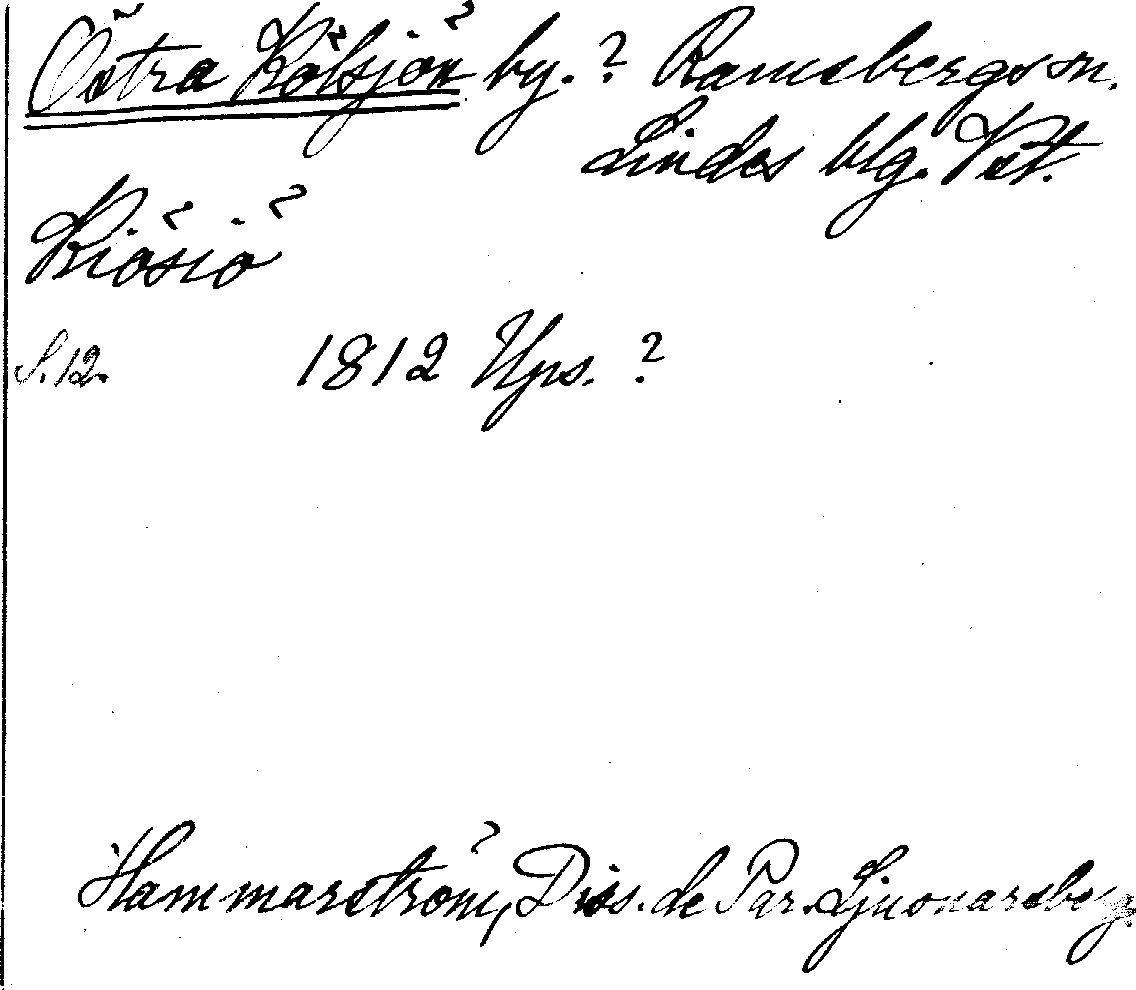 Östra Kölsjön by. ? Ramsbergs sn.
Lindes blg. Vst.
Kiösiö
S. 12. 1812 Ups. ?
Hammarström, Diss. de Par. Ljusnarsberg.